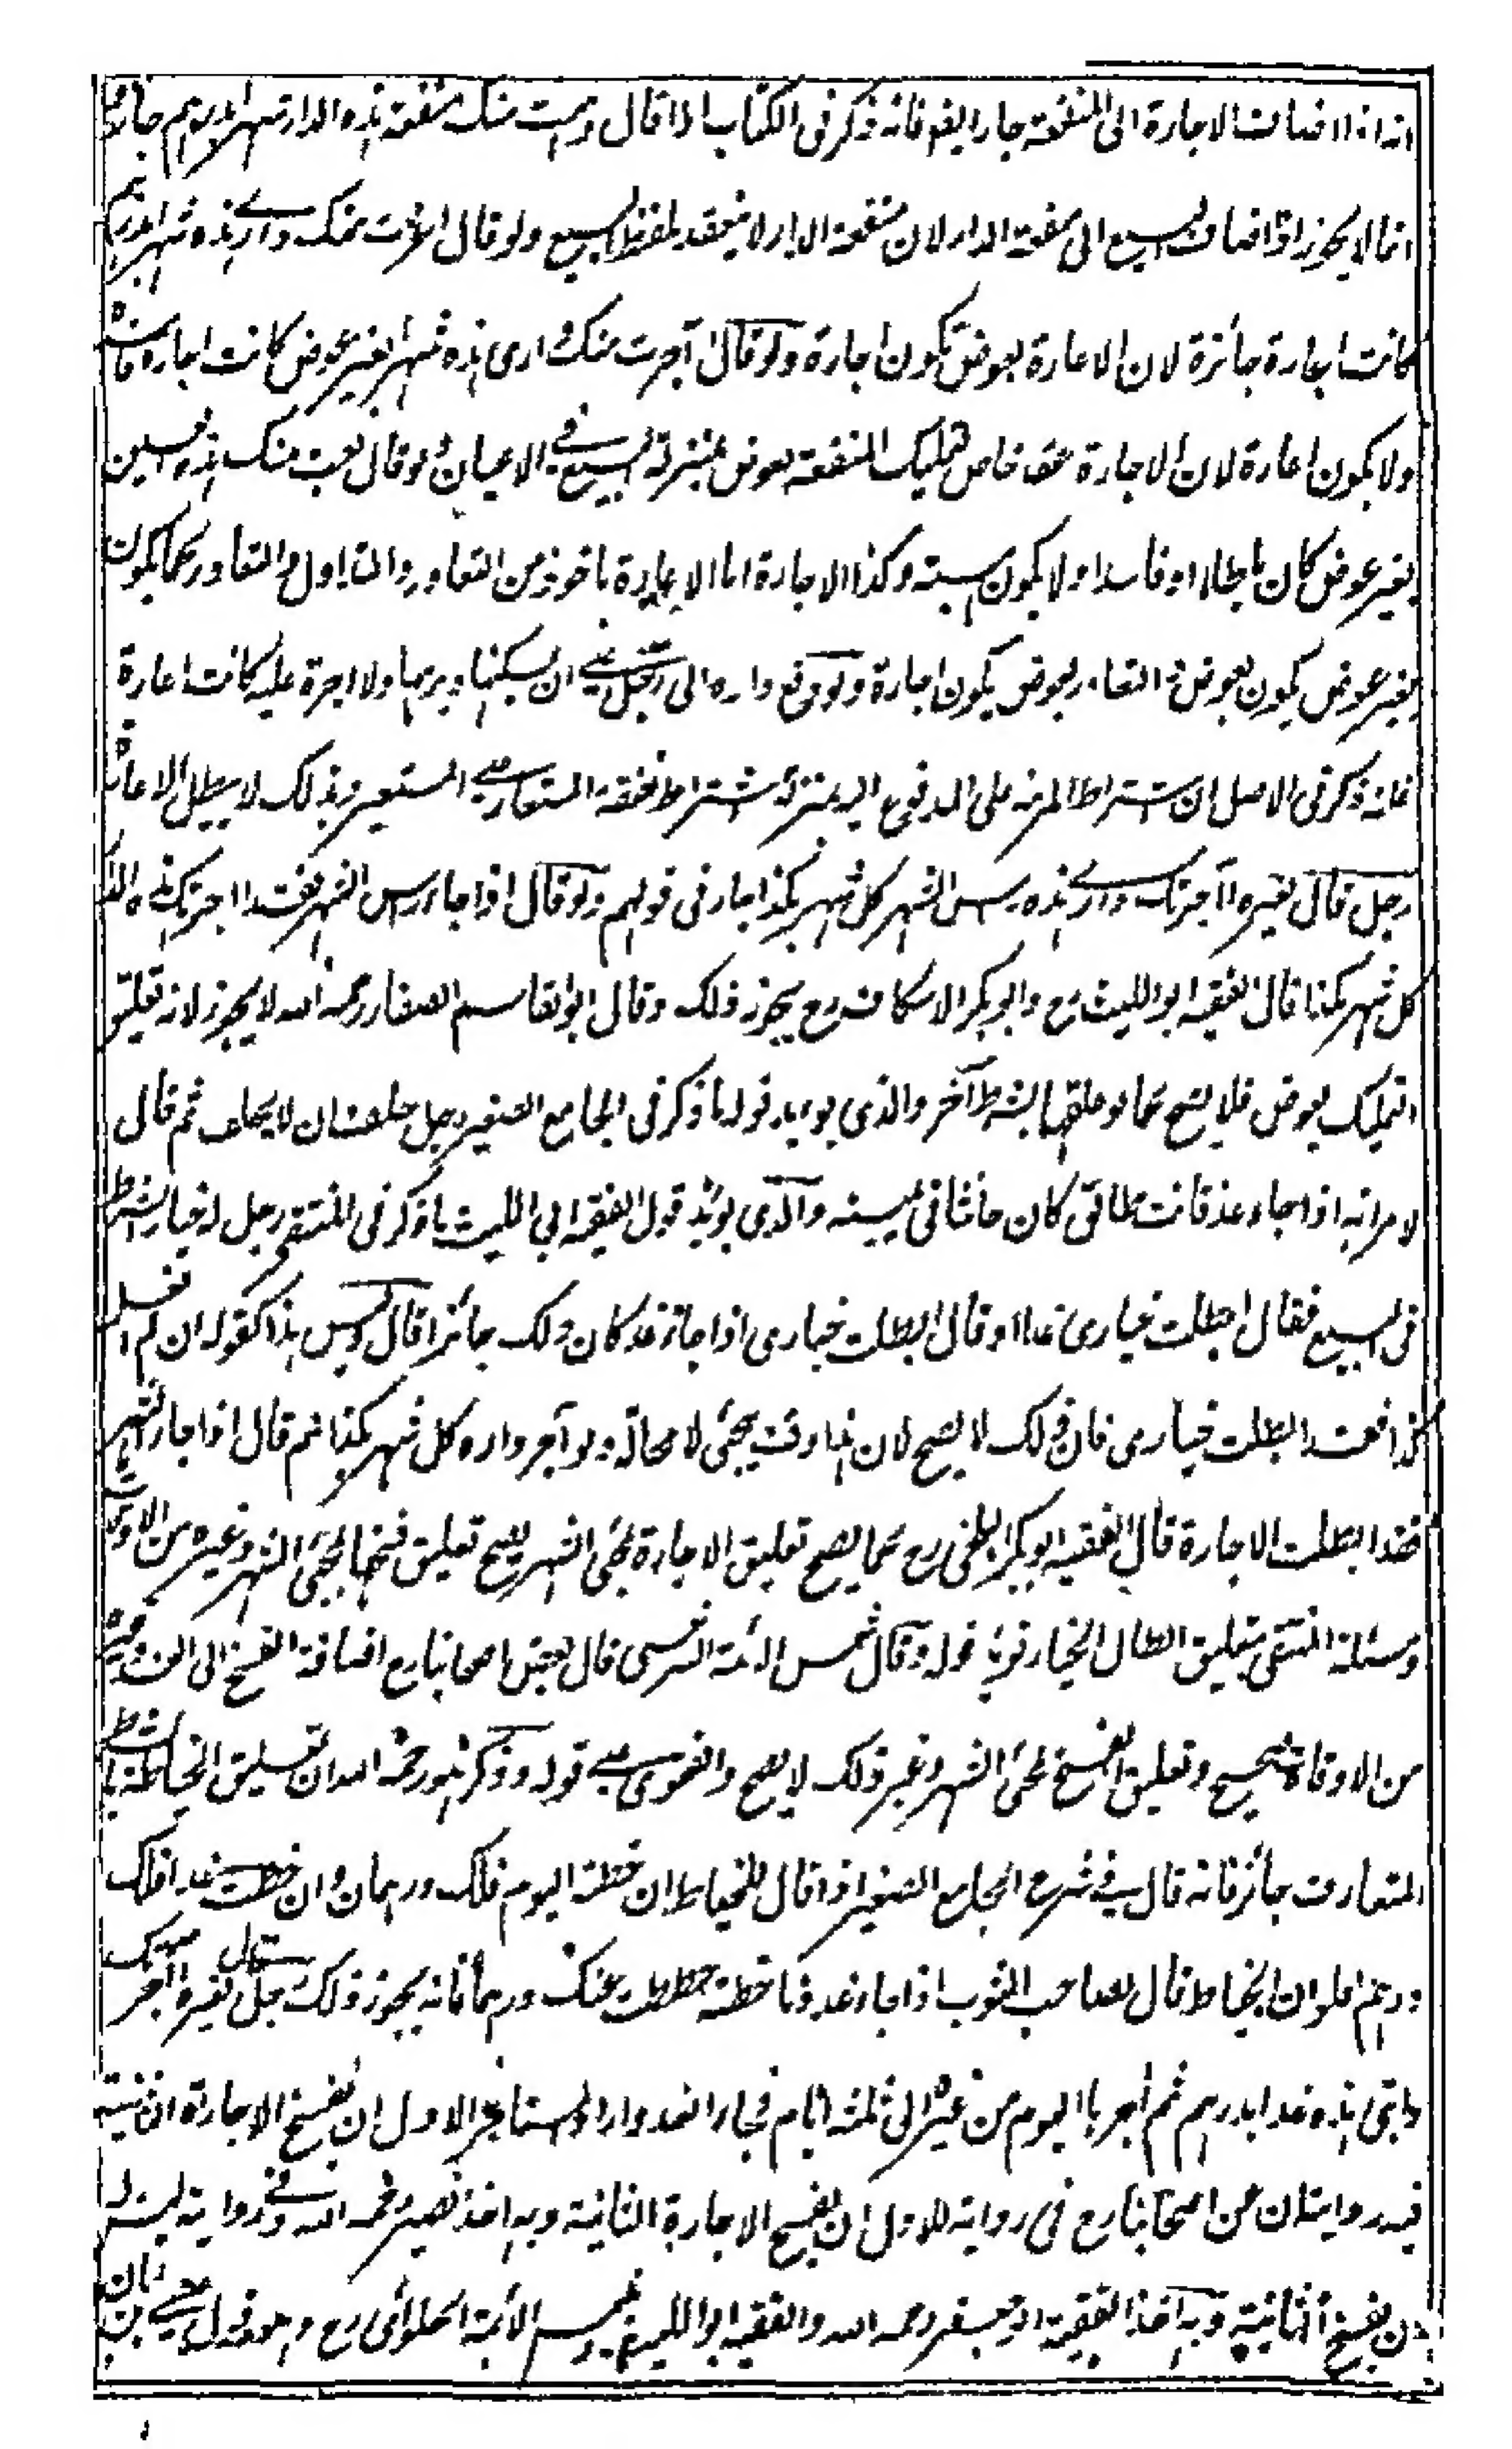 انه اذا اضاف الاجارة الى المنفعة جاز ايضا فانه ذكر فى الكتاب اذا قال وهبت منك منفعة هذه الدار شهرا بدرهم جاز
انما لا يجوز اذا اضاف البيع الى منفعة الدار لان منفعة الدار لا ينعقد بلفظ البيع ولو قال اعرت منك دارى هذه شهرا بدرهم
كانت اجارة جائزة لان الاعارة بعوض تكون اجارة ولو قال آجرت منك دارى هذه شهرا بغير عوض كانت اجارة فاسدة
ولا يكون اعارة لان الاجارة عقد خاص لتمليك المنفعة بعوض بمنزلة البيع فى الاعيان ولو قال بعت منك هذه العين
بغير عوض كان باطلا او فاسدا ولا يكون هبة وكذا الاجارة اما الاعارة ماخوذ من التعاور والتداول والتعاور كما يكون
بغير عوض يكون بعوض و التعاور بعوض يكون اجارة ولو دفع داره الى رجل على ان يسكنها ويرمها ولا اجرة عليه كانت اعارة
فانه ذكر فى الاصل ان اشتراط المرمة على المدفوع اليه بمنزلة اشتراط نفقة المستعار على المستعير وبذلك لا يبطل الاعارة
رجل قال لغيره آجرتك دارى هذه راس الشهر كل شهر بكذا جاز فى قولهم ولو قال اذا جاء راس الشهر فقد اجرتك هذه الدار
كل شهر بكذا قال الفقيه ابو الليث رح وابو بكر الاسكاف رح يجوز ذلك وقال ابو القاسم الصفار رحمه الله لا يجوز لانه تعليق
التمليك بعوض فلا يصح كما لو علقها بشرط آخر والذى يويد قوله ما ذكر فى الجامع الصغير رجل حلف ان لا يحلف ثم قال
لامراته اذا جاء غد فانت طالق كان حانثا فى يمينه والذى يويد قول الفقيه ابى الليث ما ذكر فى المنتقى رجل له خيار الشرط
فى البيع فقال ابطلت خيارى غدا او قال ابطلت خيارى اذا جاء غد كان ذلك جائزا قال وليس هذا كقوله ان لم افعل
كذا فقد ابطلت خيارى فان ذلك لا يصح لان هذا وقت يجئ لا محالة ولو آجر داره كل شهر بكذا ثم قال اذا جاء الشهر
فقد ابطلت الاجارة قال الفقيه ابو بكر البلخى رح كما يصح تعليق الاجارة بمجئ الشهر يصح تعليق فسخها بمجئ الشهر وغيره من الاوقات
ومسئلة المنتقى بتعليق ابطال الخيار تويد قوله وقال شمس الائمة السرخسى قال بعض اصحابنا رح اضافة الفسخ الى الغد وغيره
من الاوقات صحيح وتعليق الفسخ بمجئ الشهر وغير ذلك لا يصح والفتوى على قوله وذكر هو رحمه الله ان تعليق الحط بالشرط
المتعارف جائز فانه قال فى شرح الجامع الصغير اذا قال للخياط ان خطته اليوم فلك درهمان وان خطت غدا فلك
درهم فلو ان الخياط قال لصاحب الثوب اذا جاء غد وما خطته حططت عنك درهما فانه يجوز ذلك رجل قال لغيره آجرتك
دابتى هذه غدا بدرهم ثم آجرها اليوم من غيره الى ثلثة ايام فجاء الغد واراد المستاجر الاول ان يفسخ الاجارة الثانية
فيه روايتان عن اصحابنا رح فى رواية للاول ان يفسخ الاجارة الثانية وبه اخذ نصير رحمه الله وفى رواية ليس له
ان يفسخ الثانية وبه اخذ الفقيه ابو جعفر رحمه الله والفقيه ابو الليث وشمس الائمة الحلوائى رح وهو قول عيسى بن ابان